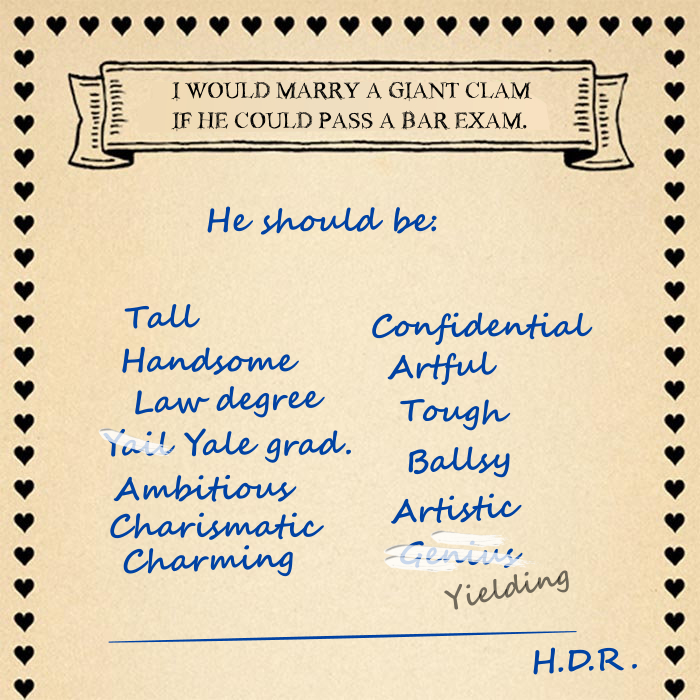 I WOULD MARRY A GIANT CLAM
IF HE COULD PASS A BAR EXAM.
He should be:
Tall
Handsome
Law degree
Yail Yale grad.
Ambitious
Charismatic
Charming
Confidential
Artful
Tough
Ballsy
Artistic
Genius
Yielding
H.D.R.